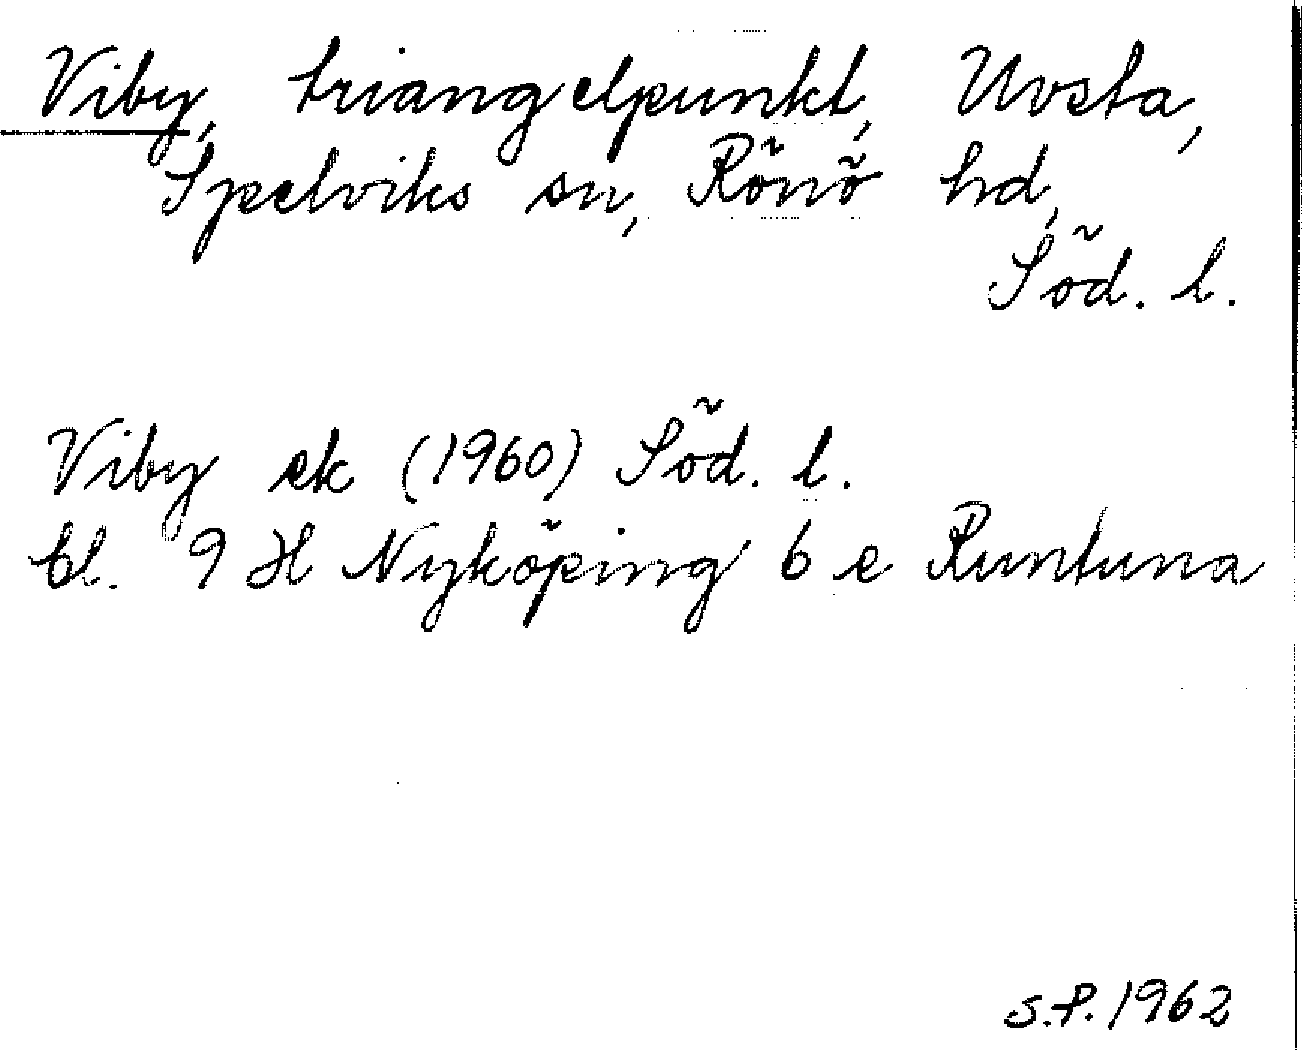 Viby, triangelpunkt, Uvsta,
Spelviks sn, Rönö hd,
Söd. l.
Viby ek (1960) Söd. l.
bl. 9 H Nyköping 6 e Runtuna
S.P. 1962